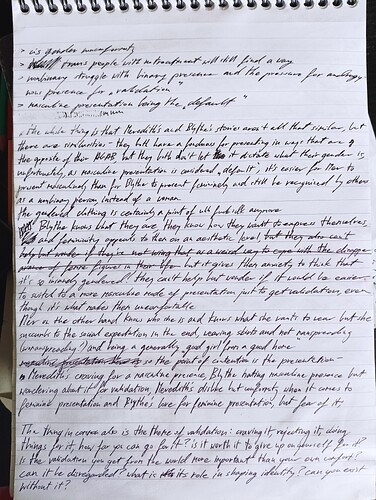 > cis gender nonconformity
> trans people with no treatment will still find a way
> nonbinary struggle with binary presence and the pressure for androgy-
nous presence for "validation"
> masculine presentation being the "default"
the whole thing is that Meredith's and Blythe's stories aren't all that similar, but
there are similarities - they both have a fondness for presenting in ways that are
the opposite of their AGAB but they both don't let it dictate what their gender is
unfortunately, as masculine presentation is considered "default", it's easier for Mer to
present masculinely than for Blythe to present femininely and still be recognized by others
as a nonbinary person instead of a woman.
the gendered clothing is certainly a point of
Blythe knows what they are, they know how they want to express themselves,
and femininity appeals to them on an aesthetic level, but they also can't
help but wonder if they're not using that as a weird way to cope with the disappe-
arance of figures in their life but it gives them anxiety to think that
it's so innately gendered? they can't help but wonder if it would be easier
to switch to a more masculine mode of presentation just to get validation, even
though it's what makes them uncomfortable.
Mer on the other hand knows who she is and knows what she wants to wear but she
succumbs to the social expectation in the end, wearing skirts and not manspreading
(womanspreading?) and being a generally good girl from a good home
so the point of contention is the presentation -
Meredith's craving for a masculine presence, Blythe hating masculine presence but
wondering about it for validation, Meredith's dislike but conformity when it comes to
feminine presentation and Blythe's love for feminine presentation, but fear of it,
The thing in common also is the theme of validation: craving it, rejecting it, doing
things for it, how far you can go for it? is it worth it to give up on yourself for it?
is the validation you get from the world more important than your own comfort?
can it be disregarded? what is its role in shaping identity? can you exist
without it?